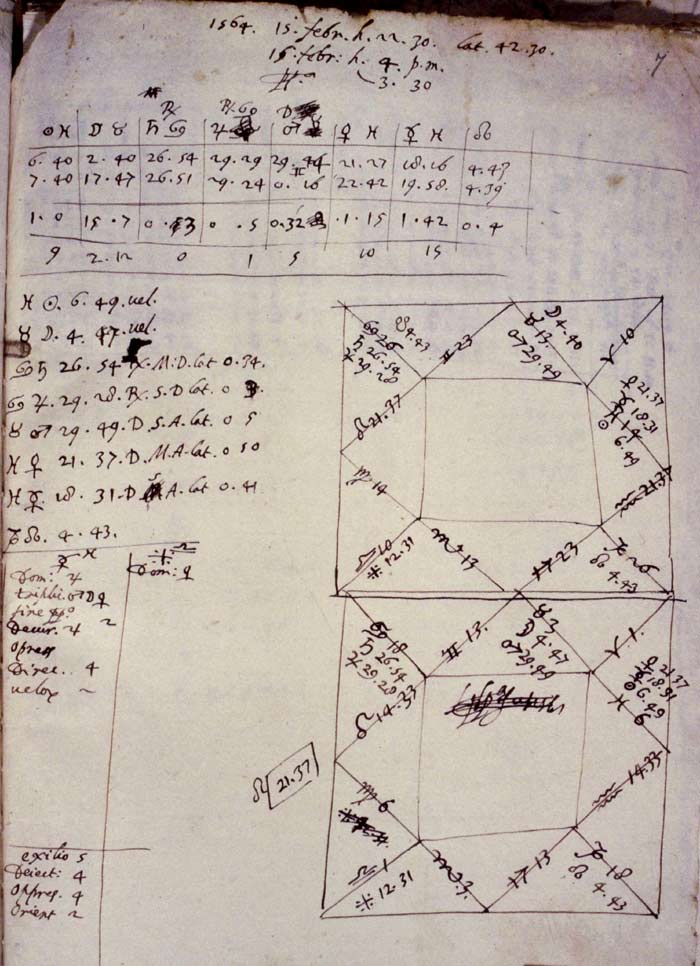 1564. 15. febr. h. 22. 30. lat. 42. 30.
15 febr: h. 4. p.m.
3. 30
7
℞ ℞ ♋ D
☉ ♓ ☽ ♉ ♄ ♋ ♃ ♂ ♀ ♓ ☿ ♓ ☊
6. 40 2. 40 26. 54 29. 29 29. 44 21. 27 18. 16 4. 47
7. 40 17. 47 26. 51 29. 24 ♊ 0. 16 22. 42 19. 58. 4. 39
1. 0 15. 7 0. 3 0. 5 0. 32 1. 15 1. 42 0. 4
9 2. 12 0 1 5 10 15
♓ ☉. 6. 49. uel.
♉ ☽. 4. 47. uel.
♋ ♄ 26. 54 ℞. M. D. lat 0. 34.
♋ ♃. 29. 28. ℞. S. D lat. 0
♉ ♂ 29. 49. D. S. A. lat. 0 5
♓ ♀ 21. 37. D. M. A. lat. 0 50
♓ ☿. 18. 31. D S A. lat 0. 41
♑ ☊. 4. 43.
☿ ♓
♎
Dom: ♃
Dom: ♀
triplic. ♂ ☽ ♀
fine
Decur. ♃
opress
Direc.. 4
uelox
exilio 5
Deiect: 4
oppres. 4
orient 2
♋ 26
♄ 26. 54
♃ 29. 28
☋ 4. 43
♊ 23
☽ 4. 40
♉ 13.
♂ 29. 49
♈ 10
♀ 21. 37
☿ 18. 31
♓ 14
☉ 6. 49
♌ 21. 37
♒ 21. 37
♍ 14
♎ 10
12. 31
♏ 13
♐ 23
♑ 26
☊ 4. 43
♋ 18
♄ 26. 54
♃ 29. 28
♊ 13.
♉ 3
☽ 4. 47
♂ 29. 49
♈ 1.
♀ 21. 37
☿ 18. 31
☉ 6. 49
♓ 6
♌ 14. 33
♒ 14. 33
♌ 21. 37
♍ 6
♎ 1
12. 31
♏ 3.
♐ 13
♑ 18
☊ 4. 43